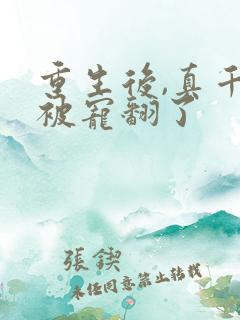 重生後,真千
被寵翻了
張鍥
未经同意禁止转载